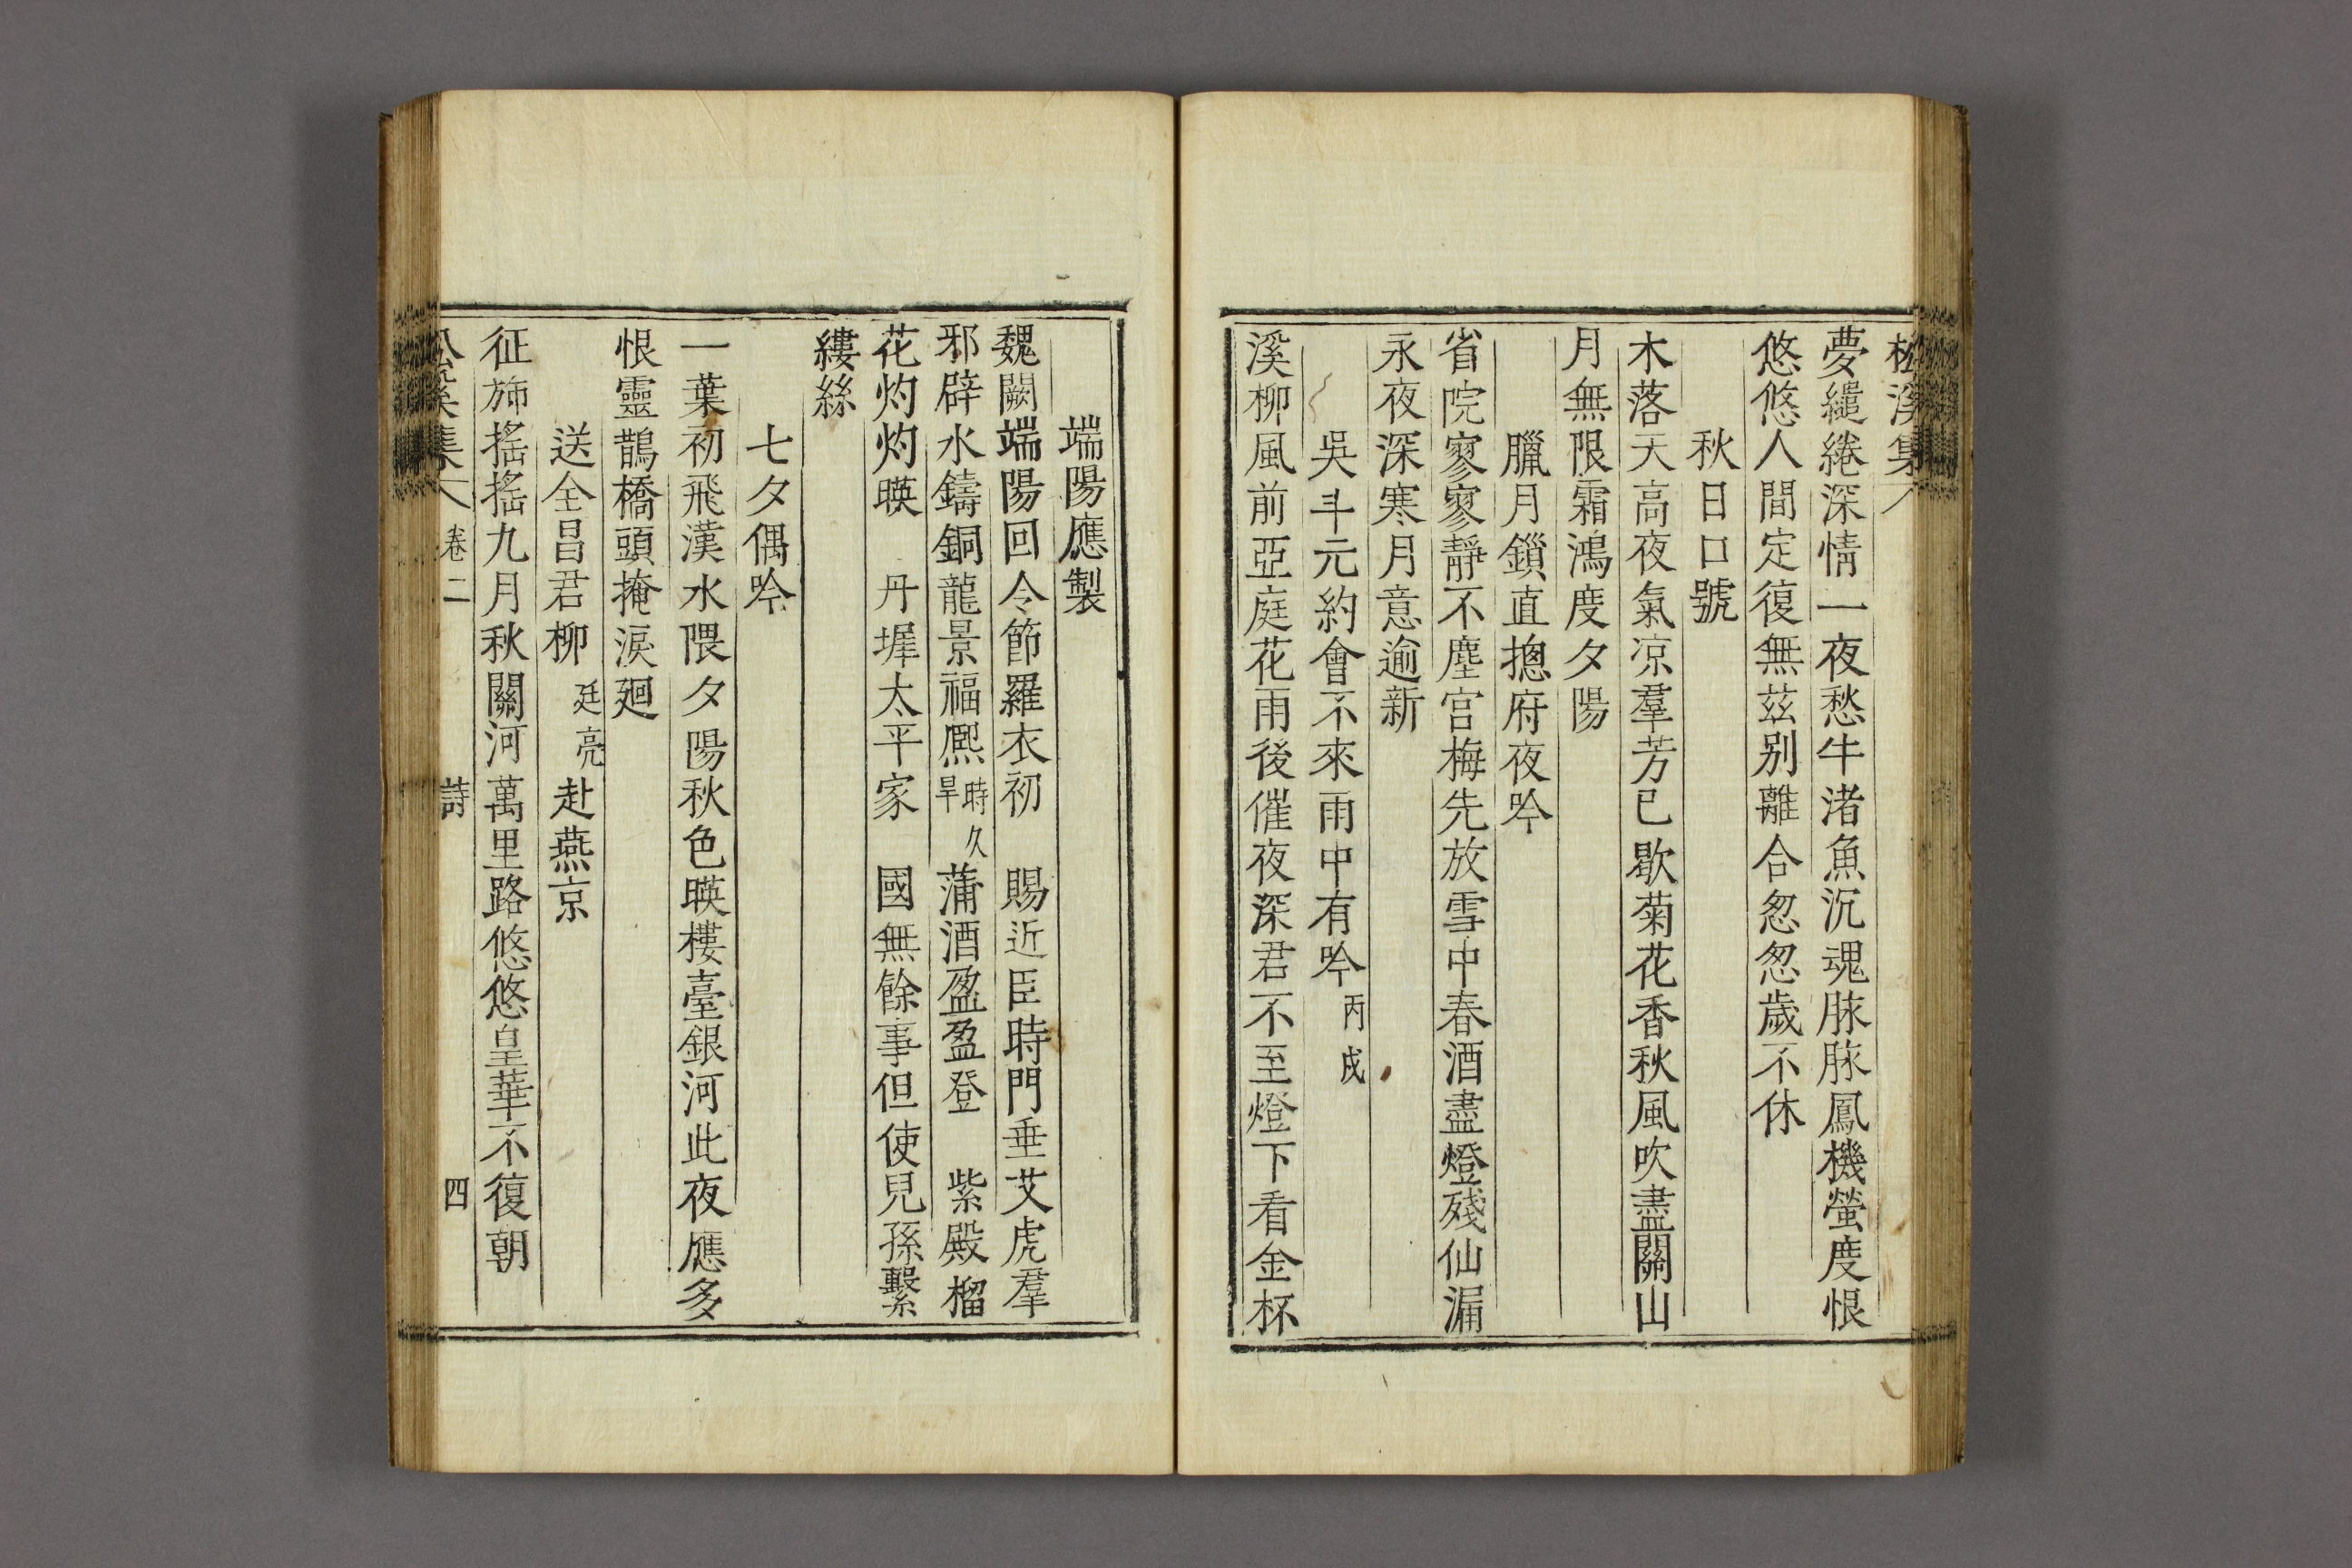 松溪集
夢繾綣深情一夜愁牛渚魚沉魂脉脉鳳機螢度恨
悠悠人間定復無茲别離合忽忽歲不休
秋日口號
木落天高夜氣凉羣芳已歇菊花香秋風吹盡關山
月無限霜鴻度夕陽
臘月鎻直摠府夜吟
省院寥寥靜不塵宮梅先放雪中春酒盡燈殘仙漏
永夜深寒月意逾新
吳斗元約會不來雨中有吟丙戌
溪柳風前亞庭花雨後催夜深君不至燈下看金杯
端陽應製
魏闕端陽回令節羅衣初 賜近臣時門垂艾虎羣
邪辟水鑄銅龍景福凞時久旱蒲酒盈盈登 紫殿榴
花灼灼暎 丹墀太平家 國無餘事但使兒孫繫
縷絲
七夕偶吟
一葉初飛漢水隈夕陽秋色暎樓臺銀河此夜應多
恨靈鵲橋頭掩淚廻
送全昌君柳廷亮赴燕京
征斾搖搖九月秋關河萬里路悠悠皇華不復朝
松溪集 卷二 詩 四